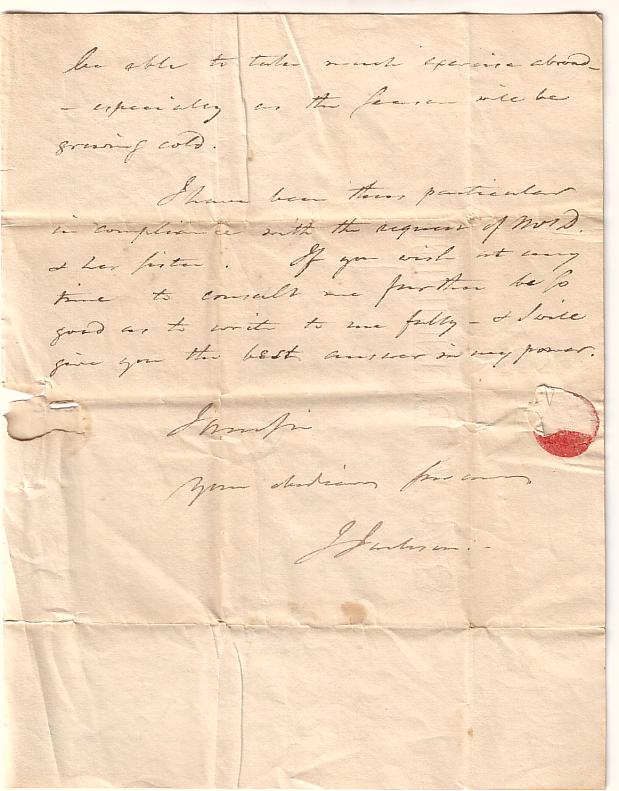 be able to take much exercise abroad -
- especially as the season will be
growing cold.
I have been thus particular
in compliance with the request of Mrs D.
& her sister. If you wish at any
time to consult me further be so
good as to write to me fully - & I will
give you the best answer in my power.
I am Sir
Your obedient servant
J Jackson